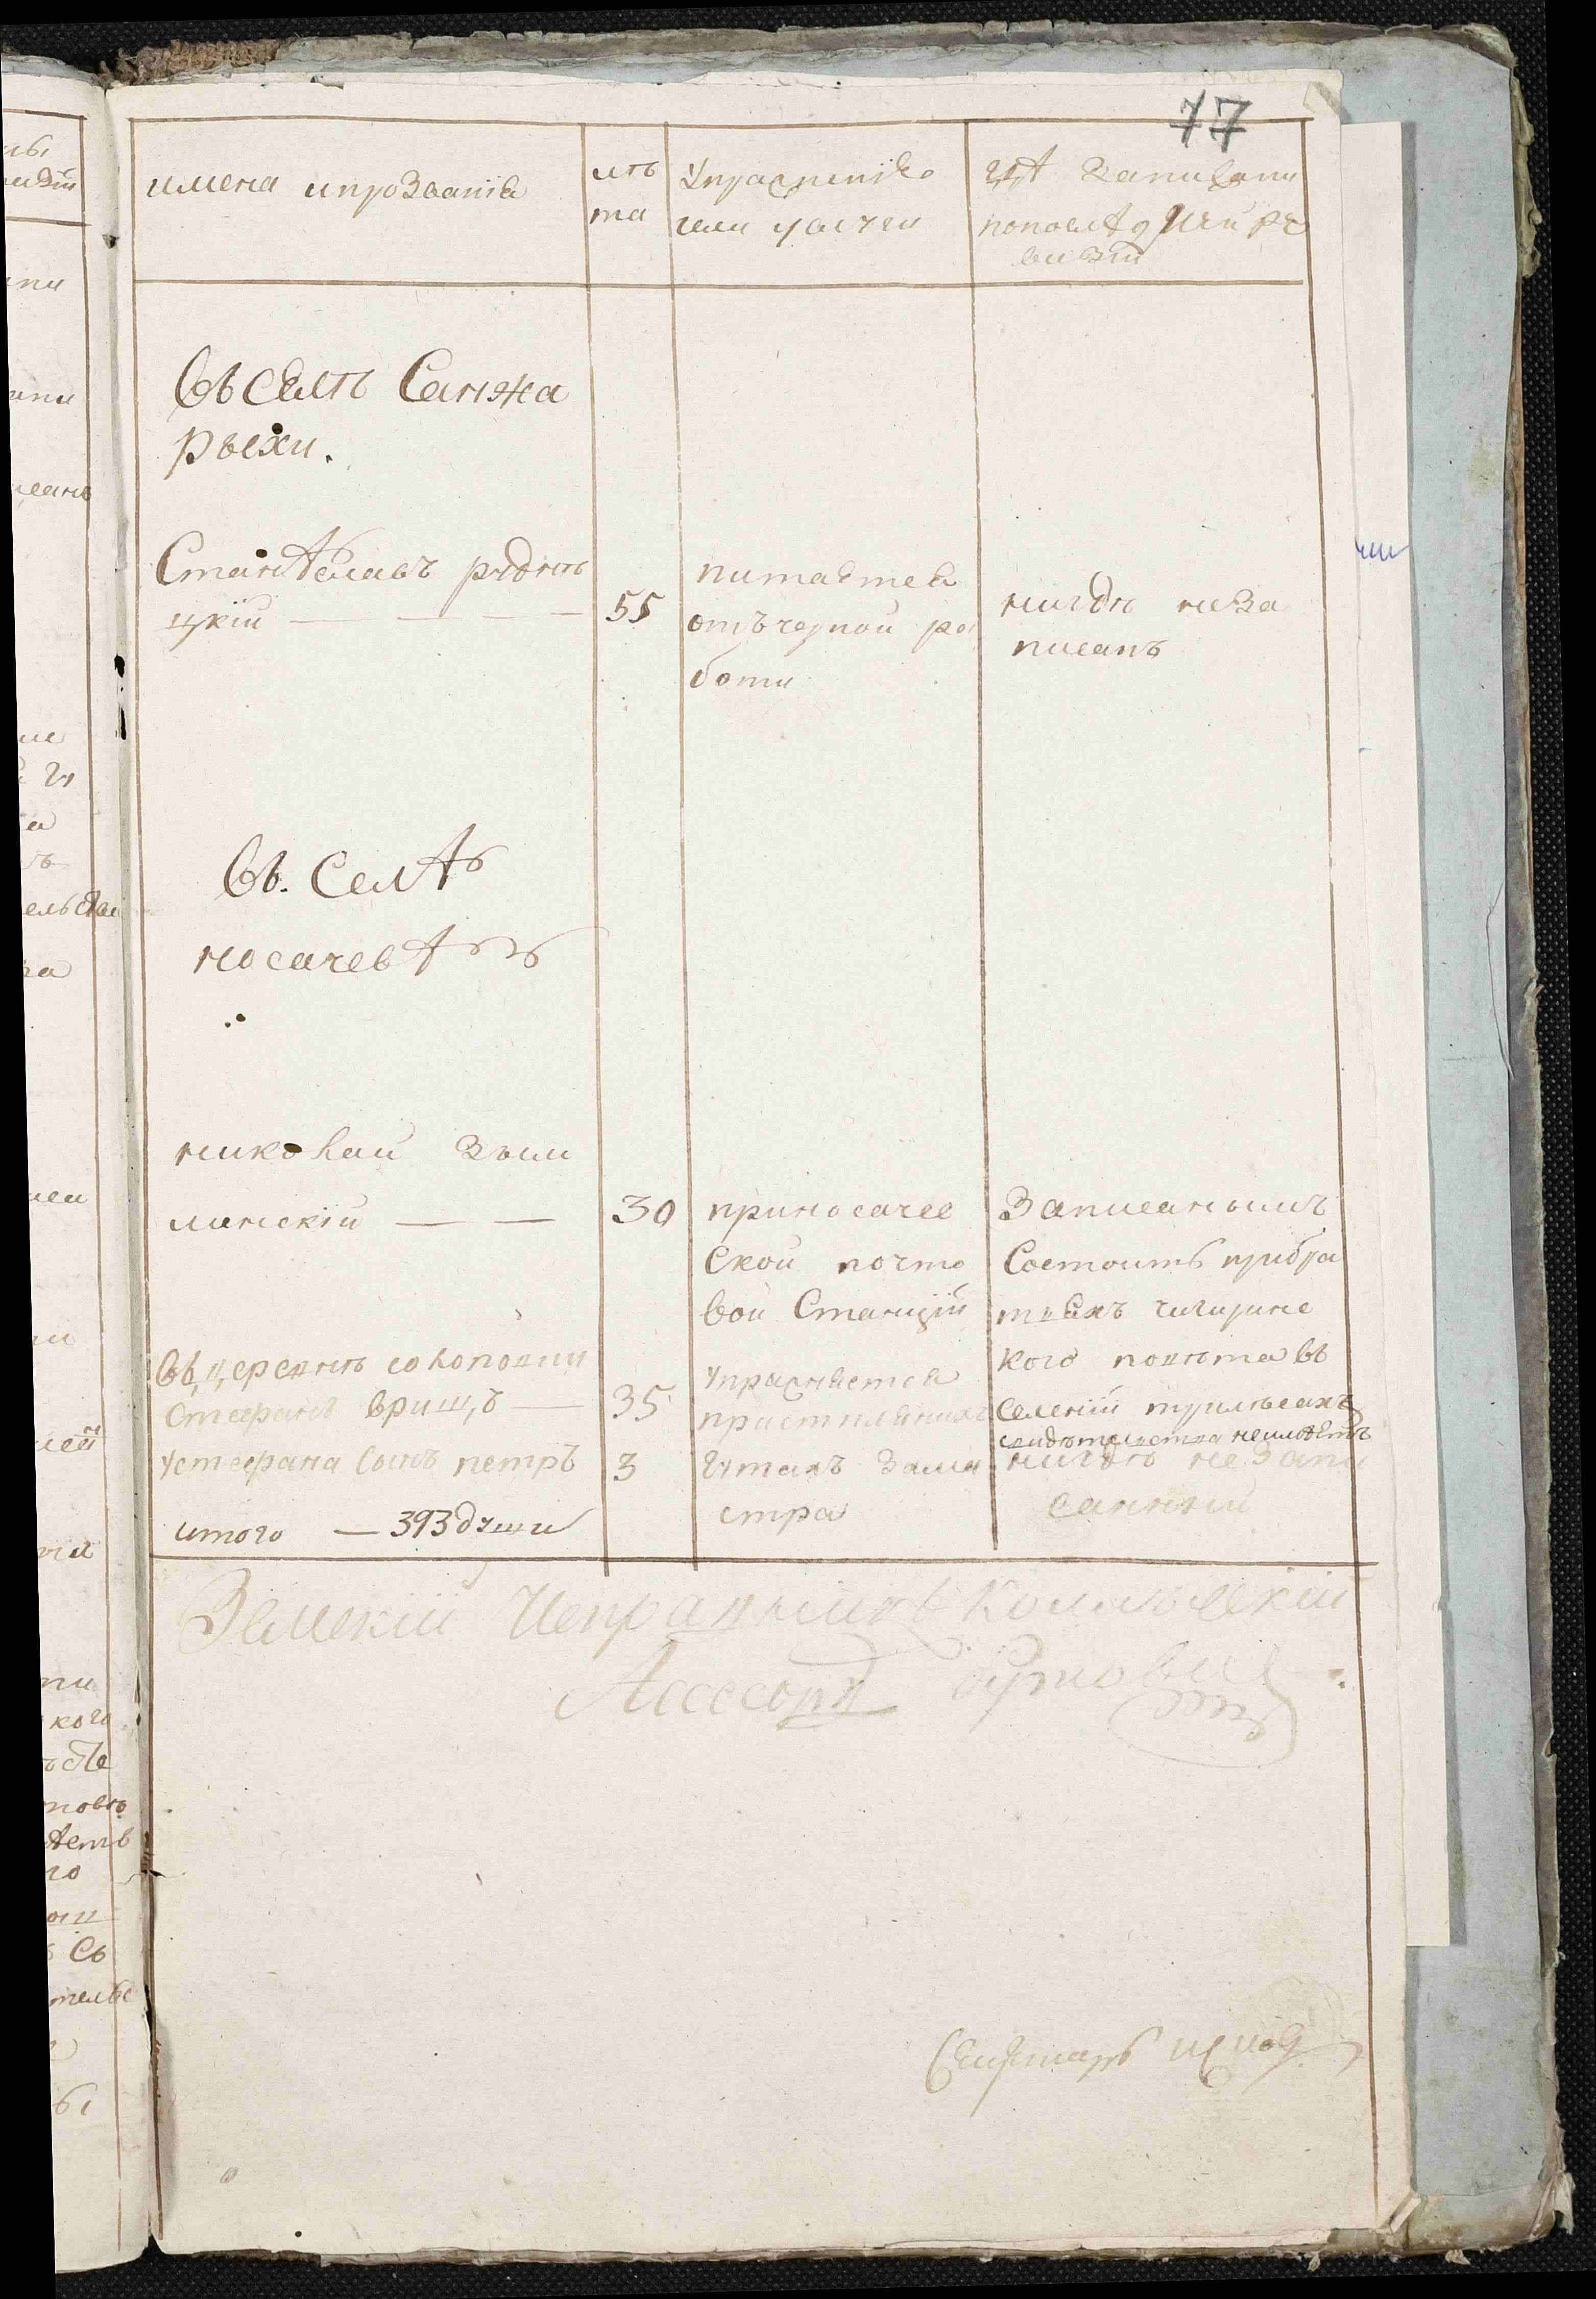 77
имена ипрозванія
лѣ
та
Упражненіе
или
гдѣ записани
попослѣдней ре
визіи
Въ селѣ Санжа
рыхи.
Станѣславъ рудне
цкій — — — —
55
питается
отъчорной ра
боти
нигдѣ неза
писанъ
Въ. Селѣ
носачевѣ
николай
линскій — —
30
приносачев
ской почто
вой Станціи
Записанымъ
Состоитъ прибра
тьяхъ чигирин
кого повѣта въ
Селеніи
свидѣтельства неимѣетъ
Въ деревнѣ
Стефанъ врищъ —
35
упражняется
при
Устефана сынъ петръ
3
нигдѣ незапи
санній
итого — 393 души
Земскій Исправникъ Коллежскій
Ассесоръ
Секретарь